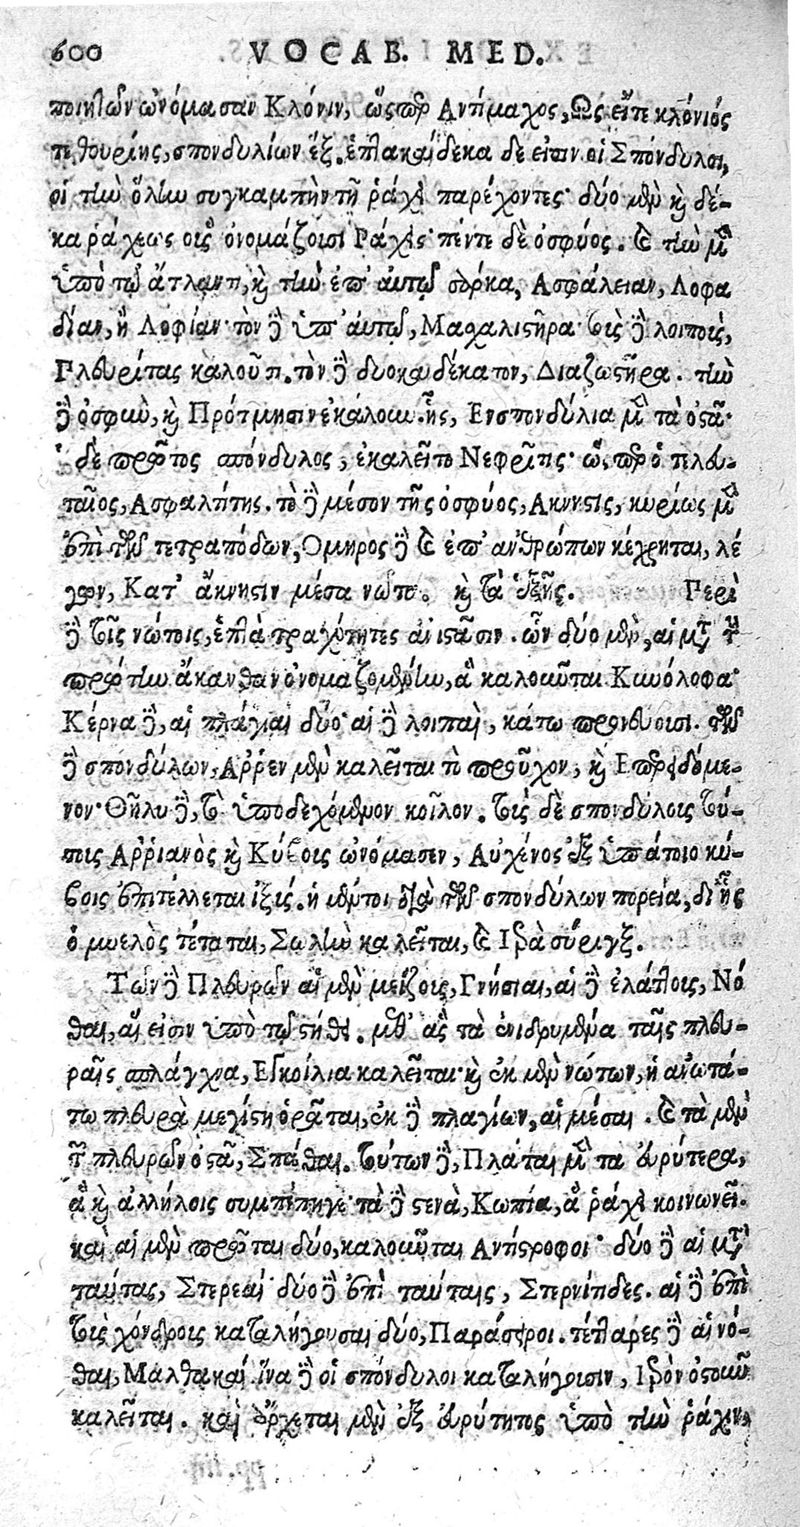 600 VOCAB. MED.
ποιητῶν ὠνόμασαν Κλόνιν, ὥσπερ Αντίμαχος, Ως εἴ τε κλόνιός
τε θουρίης, σπονδυλίων ἕξ. ἑπτακαίδεκα δε εἰσιν οἱ Σπόνδυλοι,
οἱ τὴν ὅλην συγκαμπὴν τῇ ῥάχει παρέχοντες· δύο μὲν καὶ δέ-
κα ῥάχεως οὓς ὀνομάζουσι Ράχεις· πέντε δὲ ὀσφύος. καὶ τὴν μὲν
ὑπὸ τῷ ἄτλαντι, καὶ τὴν ἐπ' αὐτῷ σάρκα, Ασφάλειαν, Λοφα
δίαν, ἢ Λοφίαν· τὸν δὲ ὑπ' αὐτῷ, Μαχαλιστῆρα· τοὺς δὲ λοιποὺς,
Πλευρίτας καλοῦσι. τὸν δὲ δυοκαιδέκατον, Διαζωστῆρα. τὴν
δὲ ὀσφὺν, καὶ Πρότμησιν ἐκάλουν. ἧς, Ενσπονδύλια μὲν τὰ ὀστᾶ·
ὁ δὲ πρῶτος σπόνδυλος, ἐκαλεῖτο Νεφρίτης· ὥσπερ ὁ τελευ-
ταῖος, Ασφαλτίτης. τὸ δὲ μέσον τῆς ὀσφύος, Ακνηστις, κυρίως μὲν
ἐπὶ τῶν τετραπόδων, Ομηρος δὲ καὶ ἐπ' ἀνθρώπων κέχρηται, λέ
γων, Κατ' ἄκνηστιν μέσα νῶτα. καὶ τὰ ἑξῆς. Περὶ
δὲ τοῖς νώτοις, ἑπτὰ τραχύτητες αἵ εἰσιν. ὧν δύο μὲν, αἱ μετὰ τὴν
πρώτην ἄκανθαν ὀνομαζομένην, ἃ καλοῦνται Κυνόλοφα·
Κέρνα δὲ, αἱ πλάγιαι δύο· αἱ δὲ λοιπαὶ, κάτω προνεύουσι. τῶν
δὲ σπονδύλων, Αρρεν μὲν καλεῖται τὸ προῦχον, καὶ Επερειδόμε-
νον· Θῆλυ δὲ, τὸ ὑποδεχόμενον κοῖλον. τοὺς δὲ σπονδύλους τού-
τους Αρριανὸς καὶ Κύβους ὠνόμασεν, Αὐχένος ἐξ ὑπάτοιο κύ-
βοις ἐπιτέλλεται ἰξύς. ἡ μέντοι διὰ τῶν σπονδύλων πορεία, δι' ἧς
ὁ μυελὸς τέταται, Σωλὴν καλεῖται, καὶ Ιερὰ σύριγξ.
Τῶν δὲ Πλευρῶν αἱ μὲν μείζους, Γνήσιαι, αἱ δὲ ἐλάττους, Νό
θαι, αἵ εἰσιν ὑπὸ τῷ στήθει. μεθ' ἃς τὰ ἐνιδρυμένα ταῖς πλευ-
ραῖς σπλάγχνα, Εγκοίλια καλεῖται· καὶ ἐκ μὲν νώτων, ἡ ἀνωτά-
τω πλευρὰ μεγίστη ὁρᾶται, ἐκ δὲ πλαγίων, αἱ μέσαι. καὶ τὰ μὲν
τῶν πλευρῶν ὀστᾶ, Σπάθαι. τούτων δὲ, Πλάται μὲν τὰ εὐρύτερα,
ἃ καὶ ἀλλήλοις συμπέπηγε· τὰ δὲ στενὰ, Κωπία, ἃ ῥάχει κοινωνεῖ.
καὶ αἱ μὲν πρῶται δύο, καλοῦνται Αντίστροφοι· δύο δὲ αἱ μετὰ
ταύτας, Στερεαί· δύο δὲ ἐπὶ ταύταις, Στερνίτιδες. αἱ δὲ ἐπὶ
τοὺς χόνδρους καταλήγουσαι δύο, Παράστροι. τέτταρες δὲ αἱ νό-
θαι, Μαλθακαί. ἵνα δὲ οἱ σπόνδυλοι καταλήγουσιν, Ιερὸν ὀστοῦν
καλεῖται. καὶ ἄρχεται μὲν ἐξ εὐρύτητος ὑπὸ τὴν ῥάχιν,